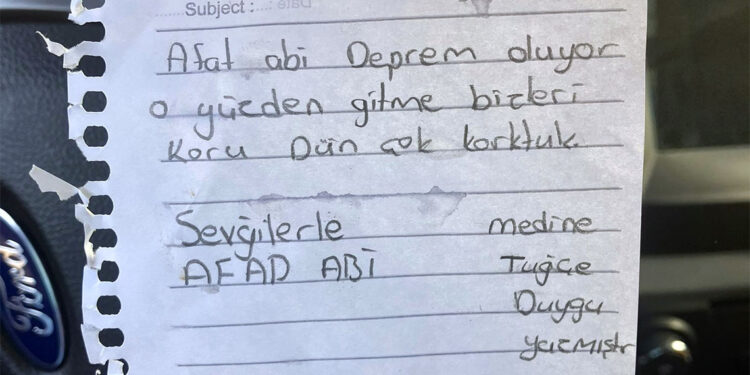 Subject :
Afat abi Deprem oluyor
o yüzden gitme bizleri
Koru Dün çok korktuk
Sevğilerle
AFAD ABİ
medine
Tuğçe
Duygu
yazmıştr
Ford